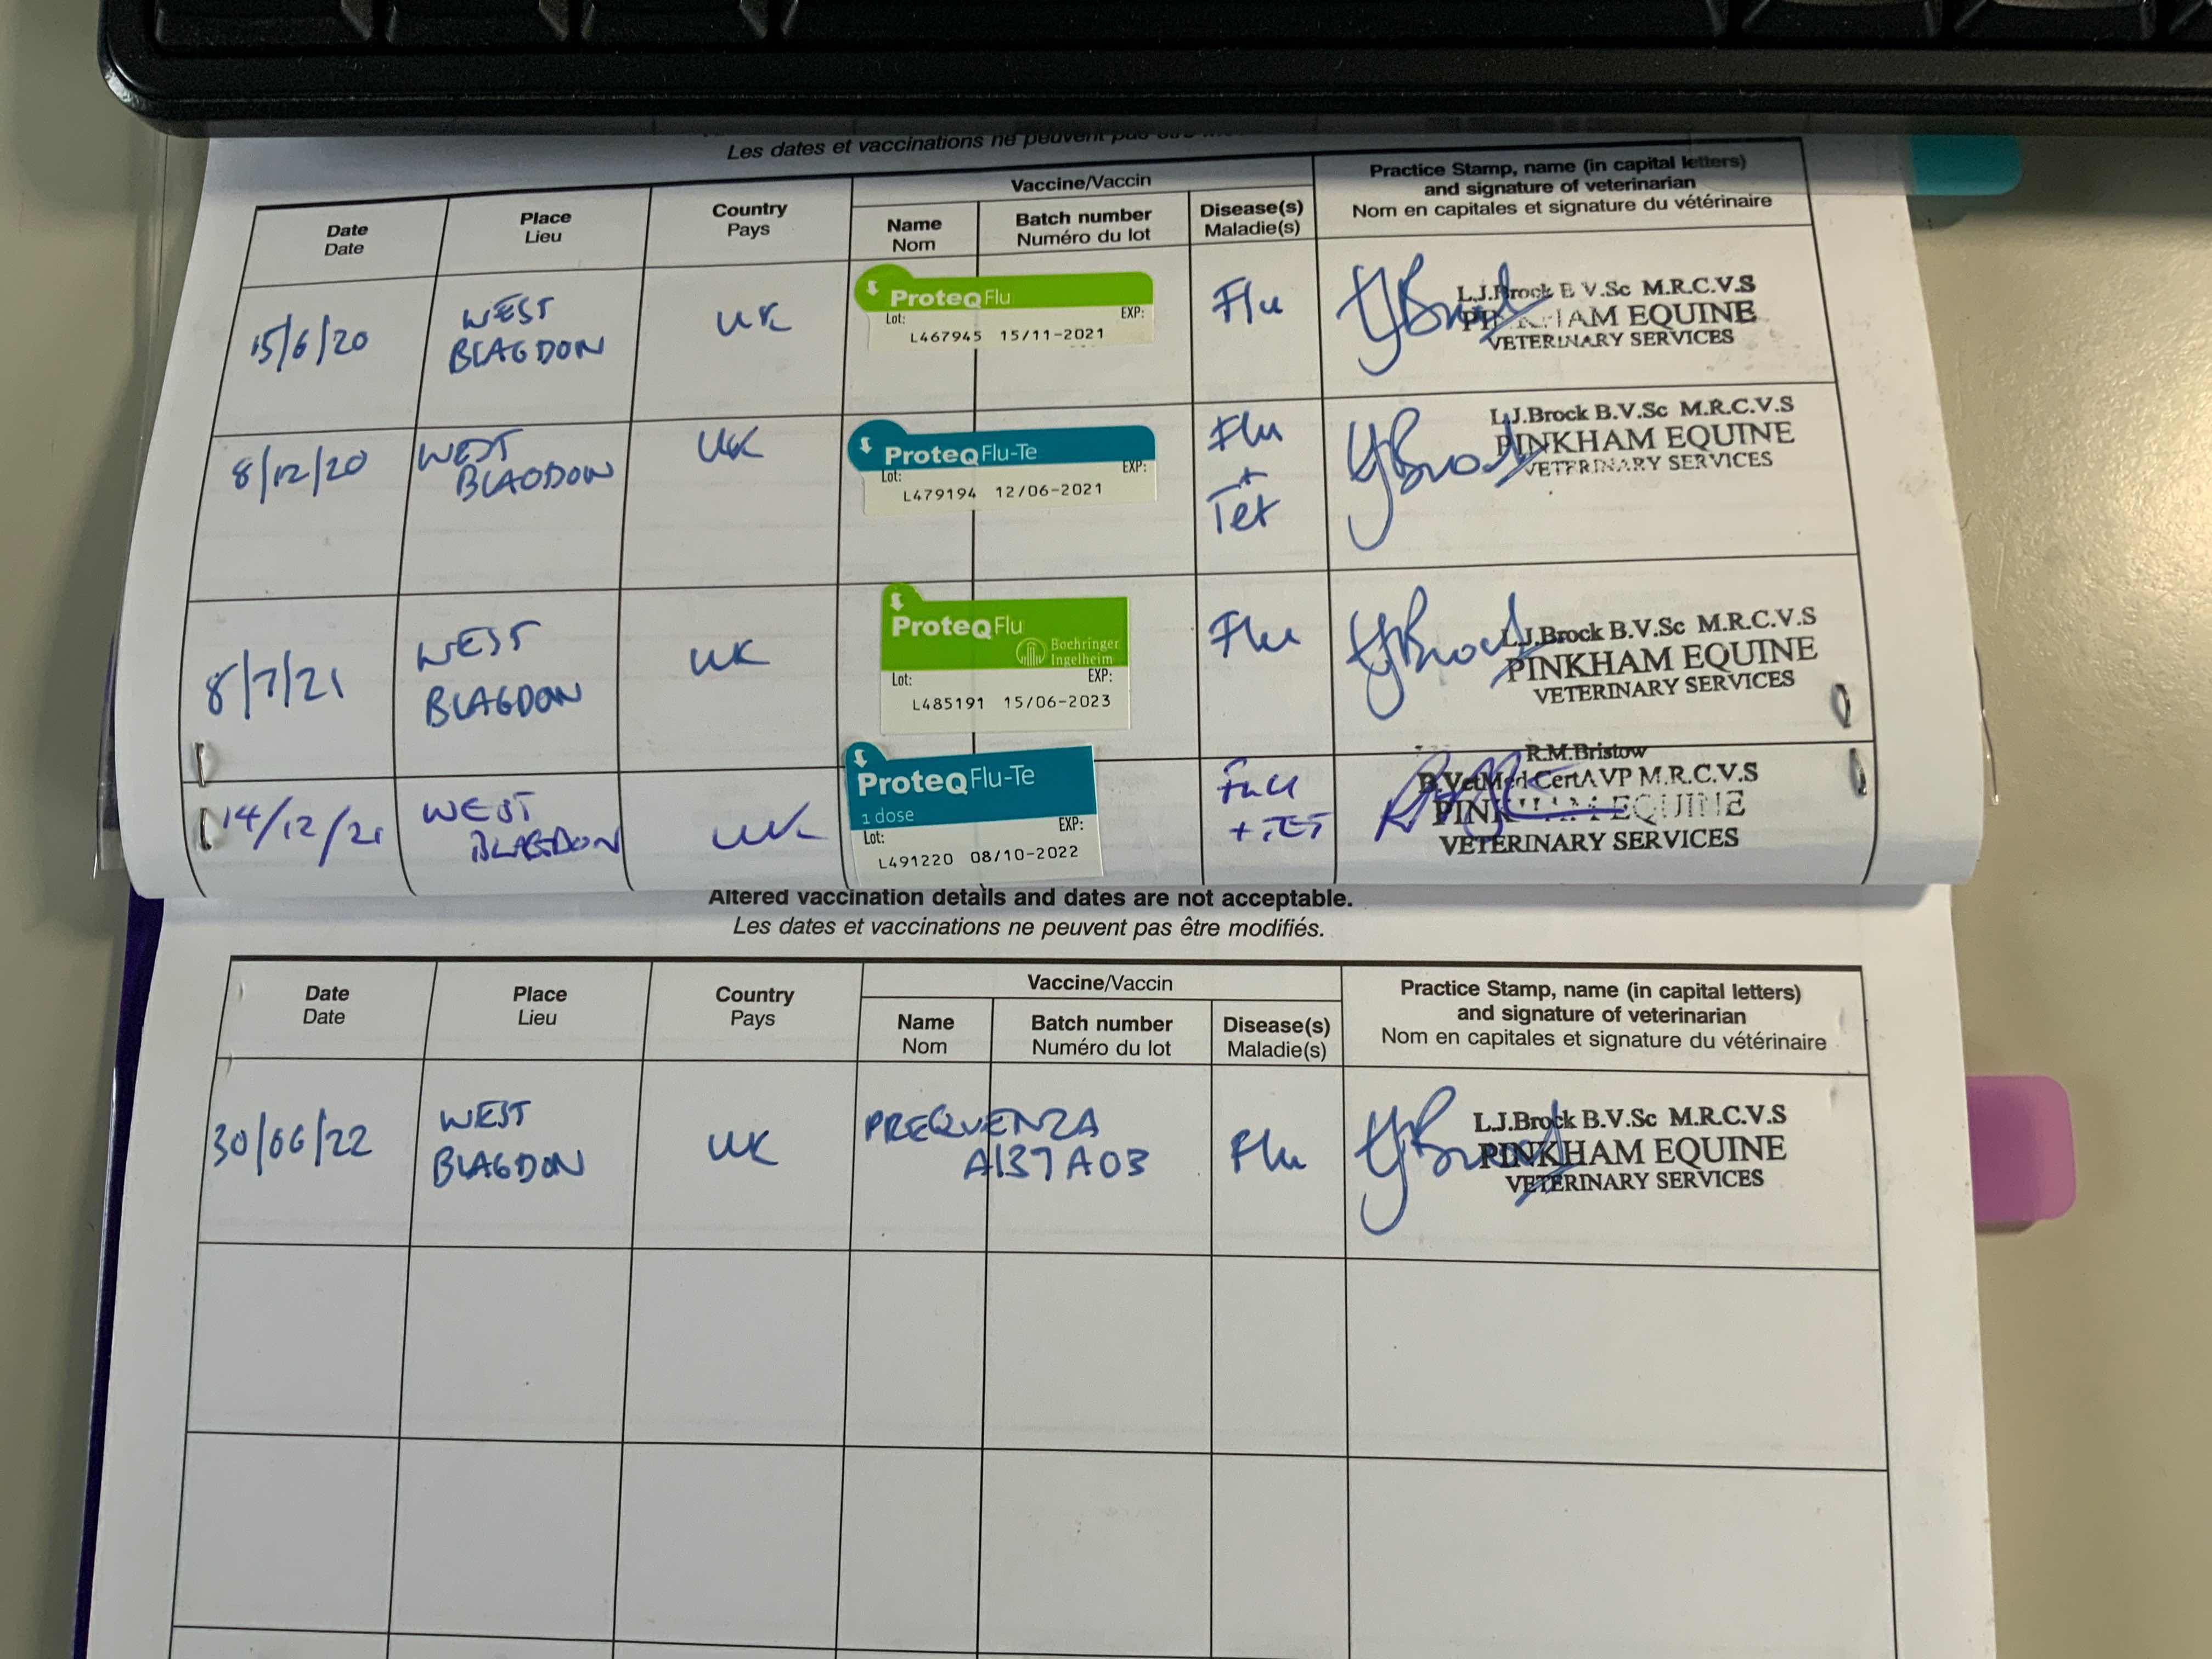 Les dates et vaccinations ne peuvent pas être
Date
Date
Place
Lieu
Country
Pays
Vaccine/Vaccin
Name
Nom
Batch number
Numéro du lot
Disease(s)
Maladie(s)
Practice Stamp, name (in capital letters)
and signature of veterinarian
Nom en capitales et signature du vétérinaire
15/6/20
WEST
BLAGDON
UK
ProteqFlu
Lot:
EXP:
L467945 15/11-2021
Flu
L.J.Brock B V.Sc M.R.C.V.S
PINKHAM EQUINE
VETERINARY SERVICES
8/12/20
WEST
BLAGDON
UK
ProteqFlu-Te
Lot:
EXP:
L479194 12/06-2021
Flu
+
Tet
L.J.Brock B.V.Sc M.R.C.V.S
PINKHAM EQUINE
VETERINARY SERVICES
8/7/21
WEST
BLAGDON
UK
ProteqFlu
Boehringer
Ingelheim
Lot:
EXP:
L485191 15/06-2023
Flu
L.J.Brock B.V.Sc M.R.C.V.S
PINKHAM EQUINE
VETERINARY SERVICES
14/12/21
WEST
BLAGDON
UK
ProteqFlu-Te
1 dose
Lot:
EXP:
L491220 08/10-2022
+ TET
R.M.Bristow
B.VetMed CertAVP M.R.C.V.S
PINKHAM EQUINE
VETERINARY SERVICES
Altered vaccination details and dates are not acceptable.
Les dates et vaccinations ne peuvent pas être modifiés.
Date
Date
Place
Lieu
Country
Pays
Vaccine/Vaccin
Name
Nom
Batch number
Numéro du lot
Disease(s)
Maladie(s)
Practice Stamp, name (in capital letters)
and signature of veterinarian
Nom en capitales et signature du vétérinaire
30/06/22
WEST
BLAGDON
UK
PREQUENZA
A137A03
Flu
L.J.Brock B.V.Sc M.R.C.V.S
PINKHAM EQUINE
VETERINARY SERVICES